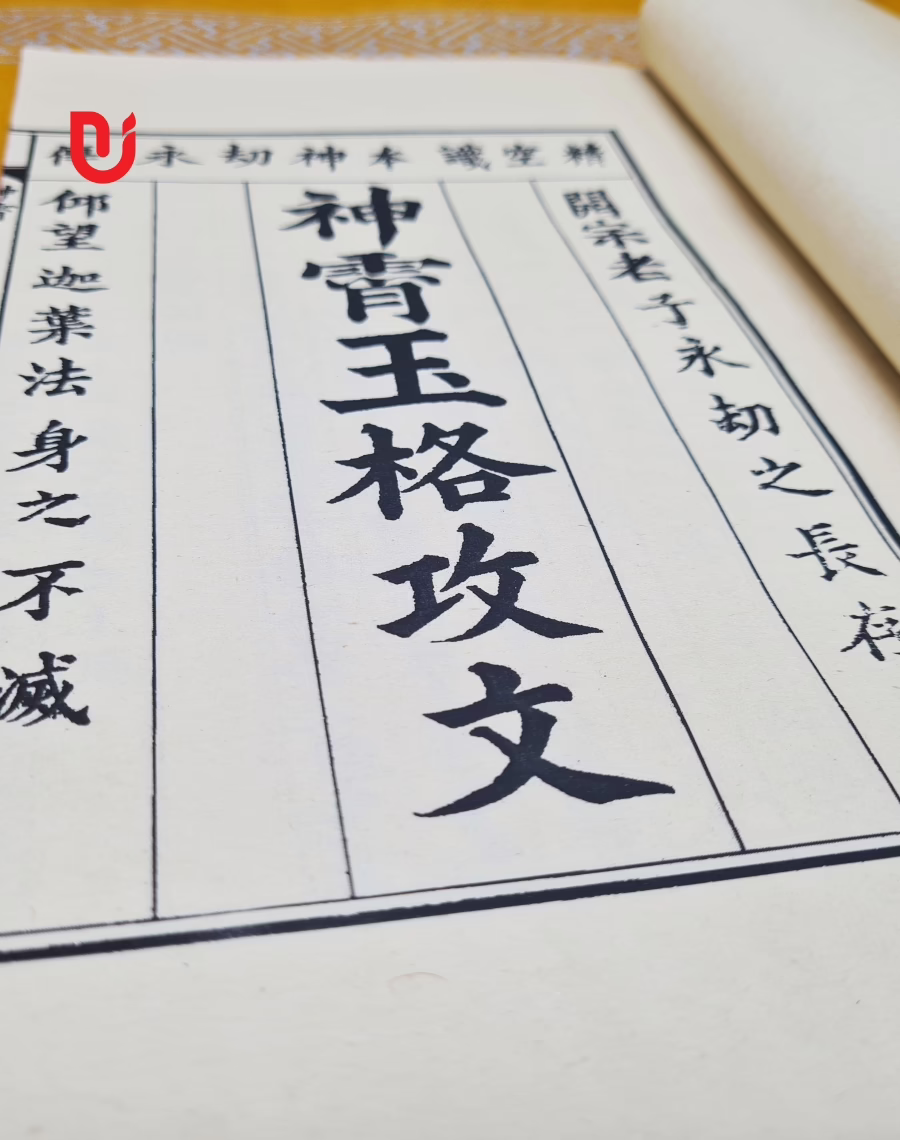 空識本神劫永
開宗老子永劫之長存
神霄玉格攻文
仰望迦葉法身之不滅